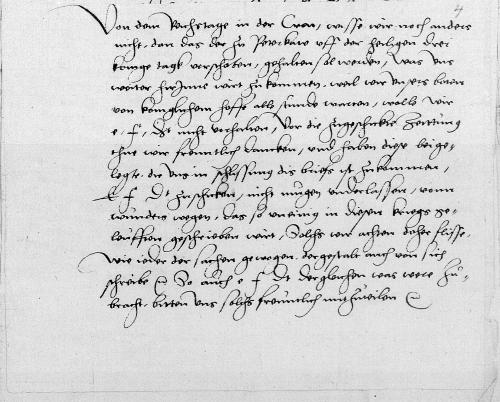 4
Von dem Reichstage in der Cron, wasse wir noch anders
nicht, dan das der zu Peterkaw uff der heiligen drei
konige tagk verschoben, gehalten sol werden, was uns
weiter hirInne wirt zukommen, weil wir unsers boten
von koniglichem hofe alle stunde warten, wolle wir
e f Dt nicht verhalten, Vor die zugeschickte Zeittung
thue wir freuntlich dancken, und haben diese beige-
legte die uns in schliessung dis briefs ist zukommen,
E f Dt zuschicken, nicht mugen underlassen, wenn
wunders wegen, das so uneinig in diesen kriegs ge-
leufften geschrieben wirt, Solchs wir achten daher fliesse
wie ieder der sachen gewogen, dergestalt auch von sich
schreibe So auch e f Dt dergleichen was were zu-
bracht, bitten uns solchs freuntlich mitzuteilen